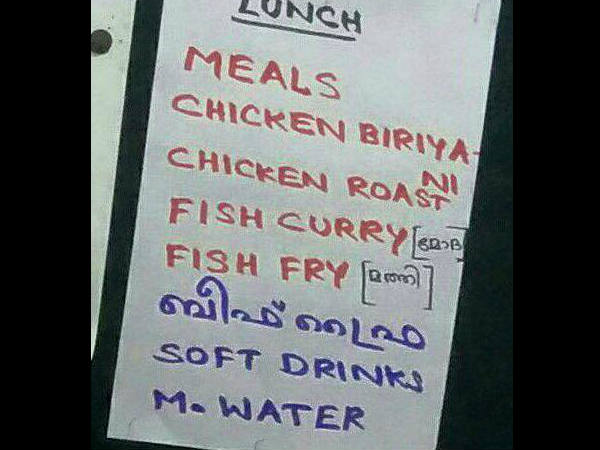 LUNCH
MEALS
CHICKEN BIRIYA-
NI
CHICKEN ROAST
FISH CURRY [മോദ]
FISH FRY [മത്തി]
ബീഫ് ഫ്രൈ
SOFT DRINKS
M. WATER